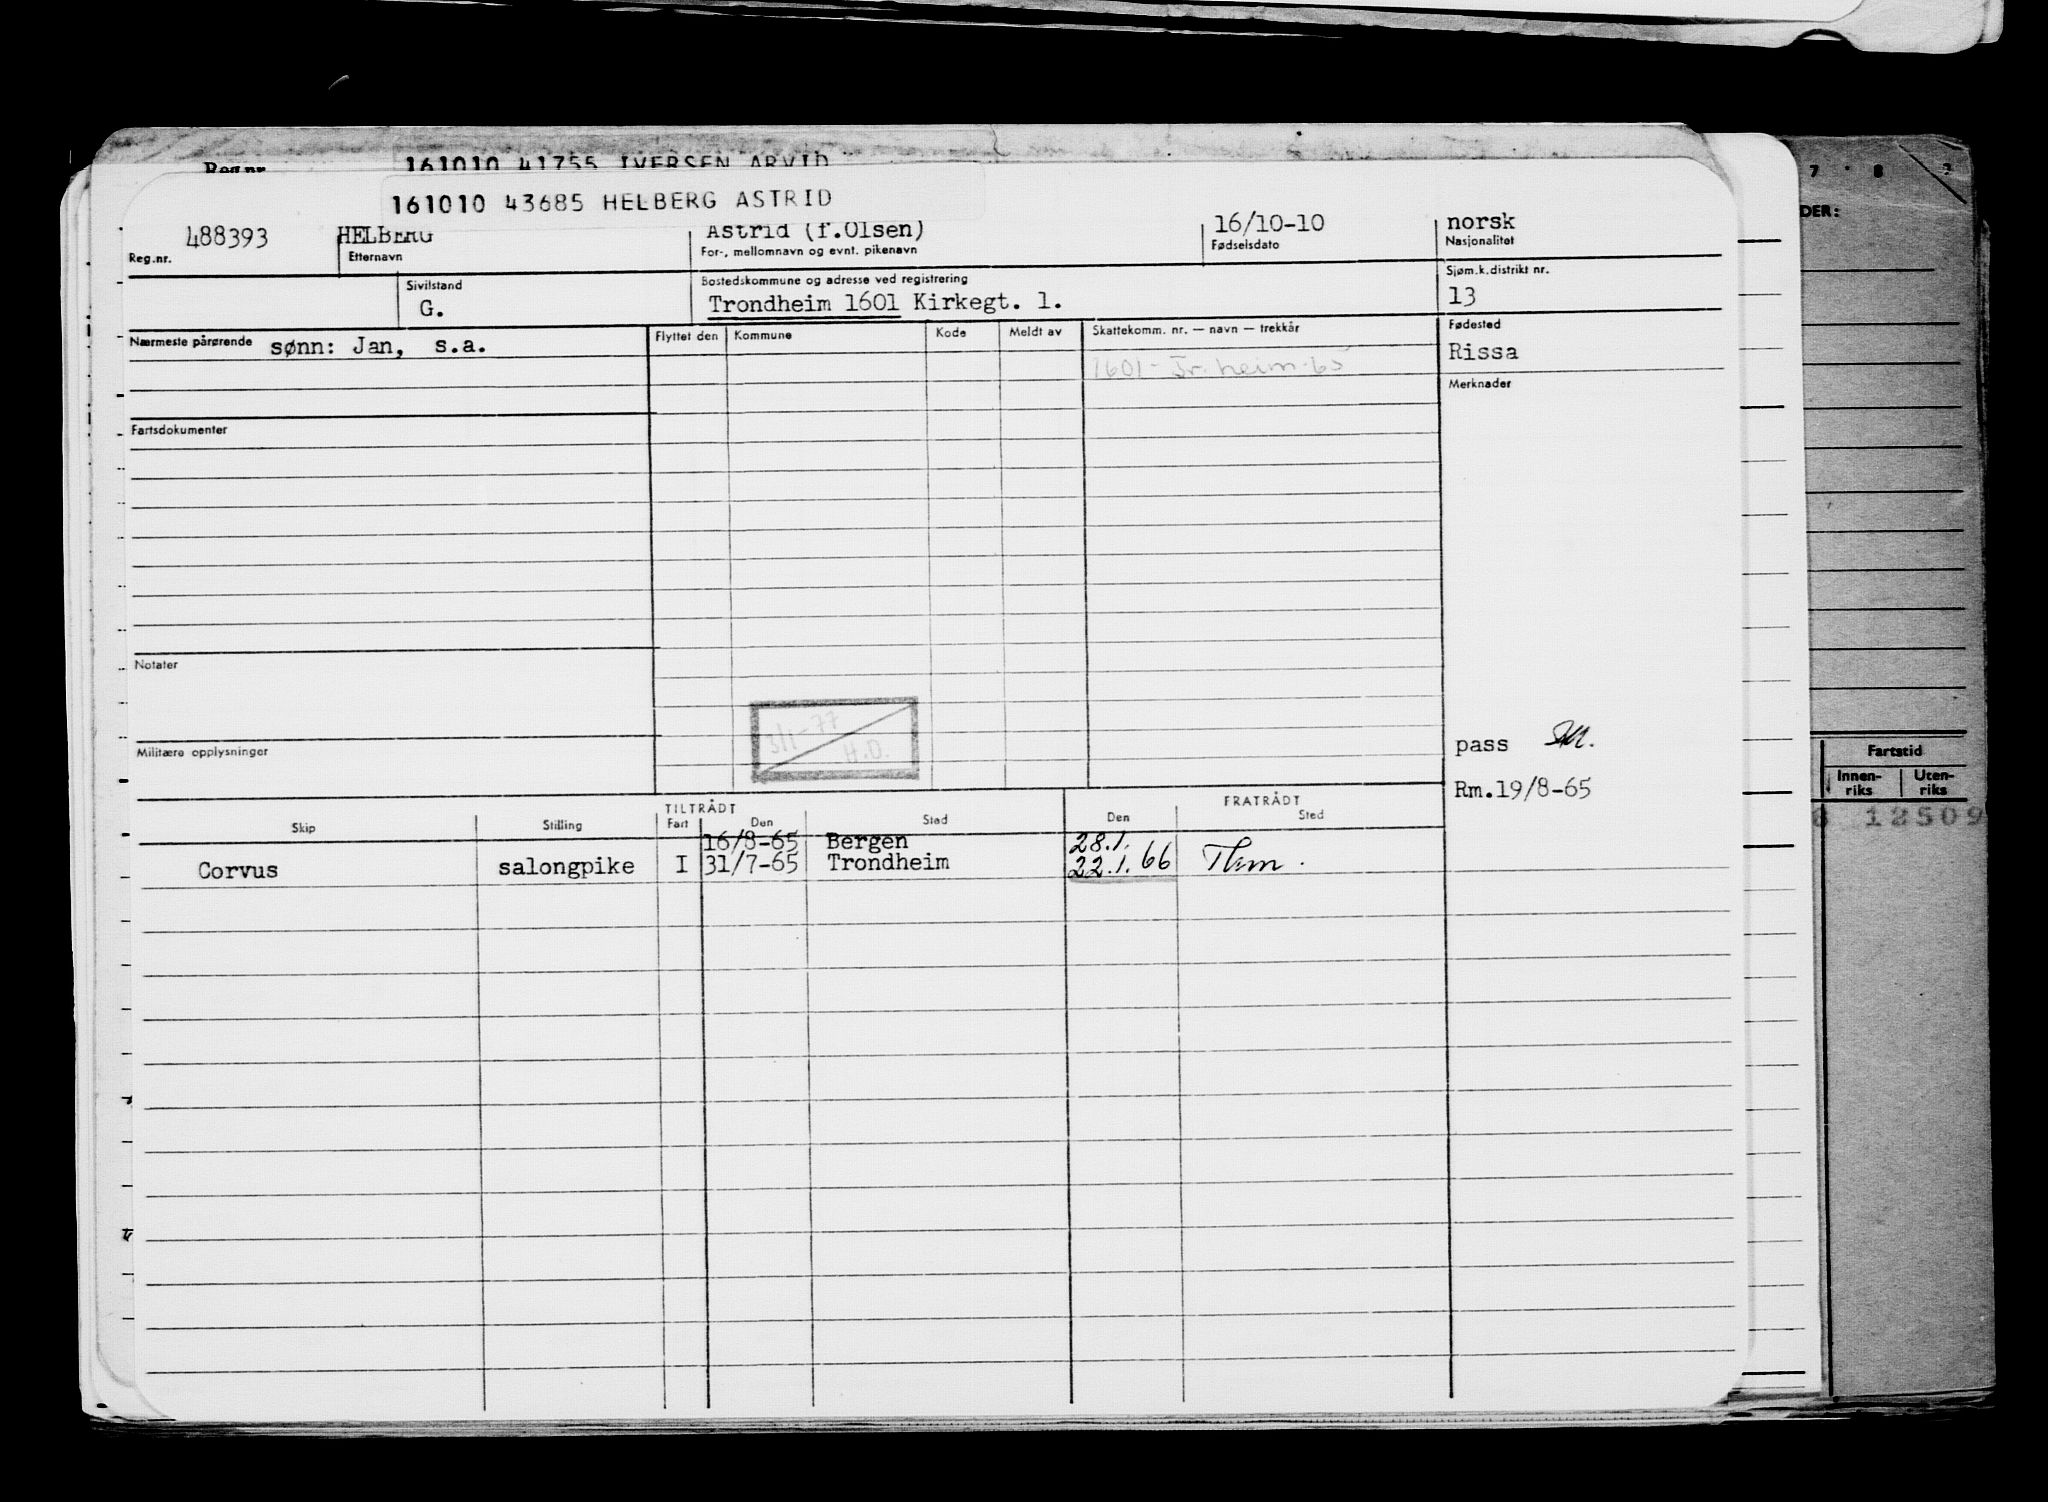 Reg.nr. 161010 41755 IVERSEN ARVID
161010 43685 HELBERG ASTRID
488393 HELBERG Astrid (f.Olsen) 16/10-10 norsk
Reg.nr. Etternavn For-, mellomnavn og evnt. pikenavn Fødselsdato Nasjonalitet
Sivilstand Bostedskommune og adresse ved registrering Sjøm.k.distrikt nr.
G. Trondheim 1601 Kirkegt. 1. 13
Nærmeste pårørende sønn: Jan, s.a. Flyttet den Kommune Kode Meldt av Skattekomm. nr. — navn — trekkår Fødested
1601 - Tr.heim-65 Rissa
Merknader
Fartsdokumenter
Notater
3/1-77
H.O.
Militære opplysninger
pass
Rm.19/8-65
TILTRÅDT FRATRÅDT
Skip Stilling Fart Den Sted Den Sted
16/8-65 Bergen 28.1.
Corvus salongpike I 31/7-65 Trondheim 22.1.66
7 8
DER:
Fartstid
Innen-riks Uten-riks
12509